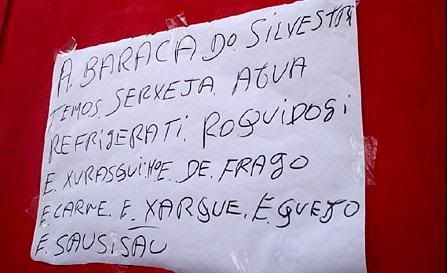 A. BARACA DO SILVESTRI
TEMOS. SERXEJA. AGUA
REFRIGERATI. ROQUIDOGI
E. XURASQUIHOE. DE. FRAGO
E CARNE. E. XARQUE. E QUEJO
E. SAUSISAU